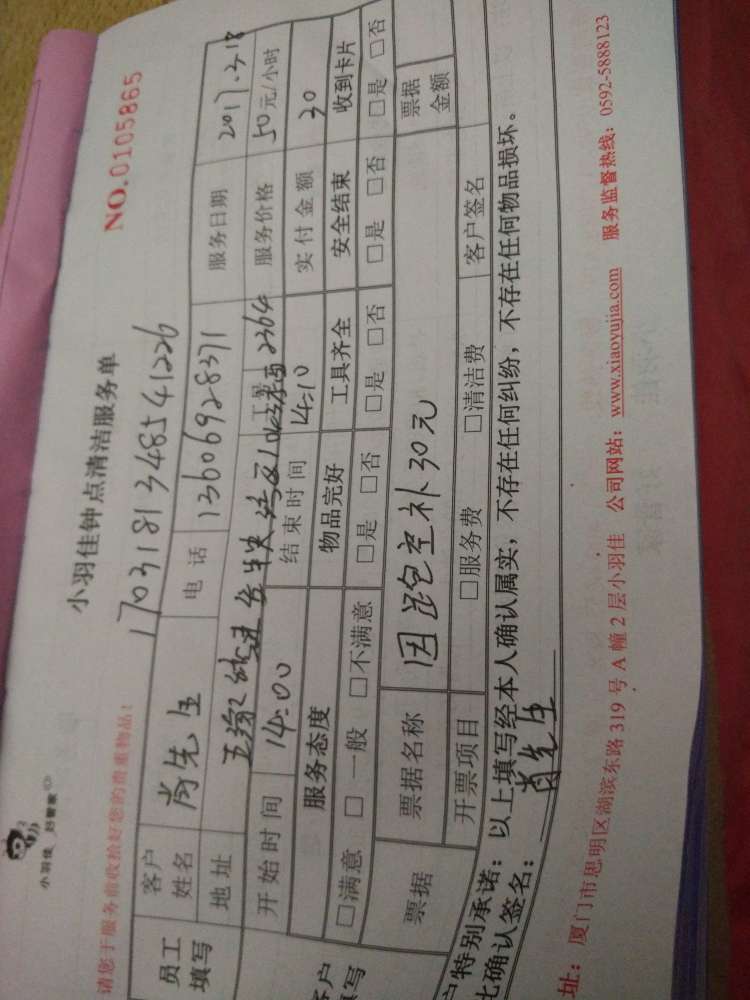 小羽佳 好管家
小羽佳钟点清洁服务单
NO.0105865
170318134854 1226
请您于服务前收拾好您的贵重物品！
员工填写 客户姓名 肖先生 电话 13606928371 服务日期 2017.3.18
地址 服务价格 50元/小时
开始时间 14:00 结束时间 14:10 实付金额 30
服务态度 物品完好 工具齐全 安全结束 收到卡片
□满意 □一般 □不满意 □是 □否 □是 □否 □是 □否 □是 □否
票据 票据名称 因跑空补30元 票据金额
开票项目 □服务费 □清洁费 客户签名
特别承诺：以上填写经本人确认属实，不存在任何纠纷，不存在任何物品损坏。
确认签名： 肖先生
址：厦门市思明区湖滨东路319号A幢2层小羽佳 公司网站：www.xiaoyujia.com 服务监督热线：0592-5888123